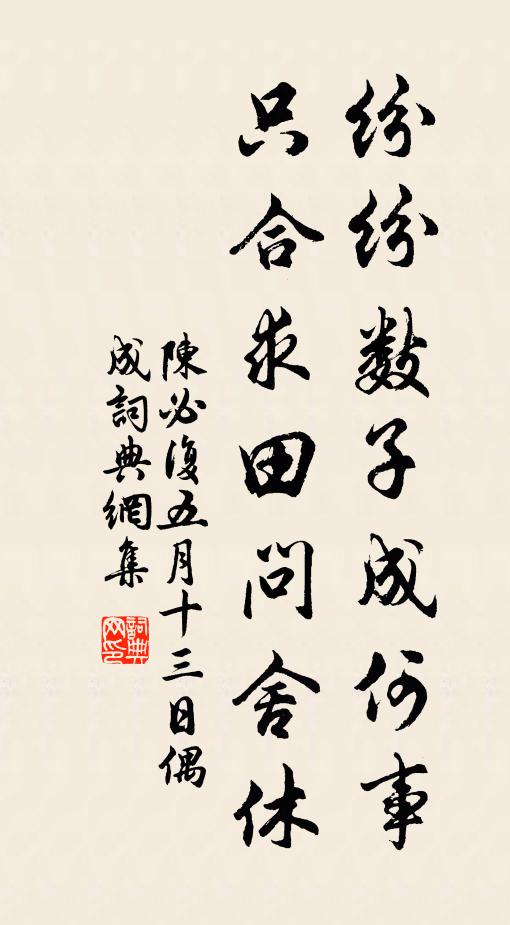 纷纷数子成何事
只合求田问舍休
陳必復五月十三日偶
成詞典網集
詞典网印